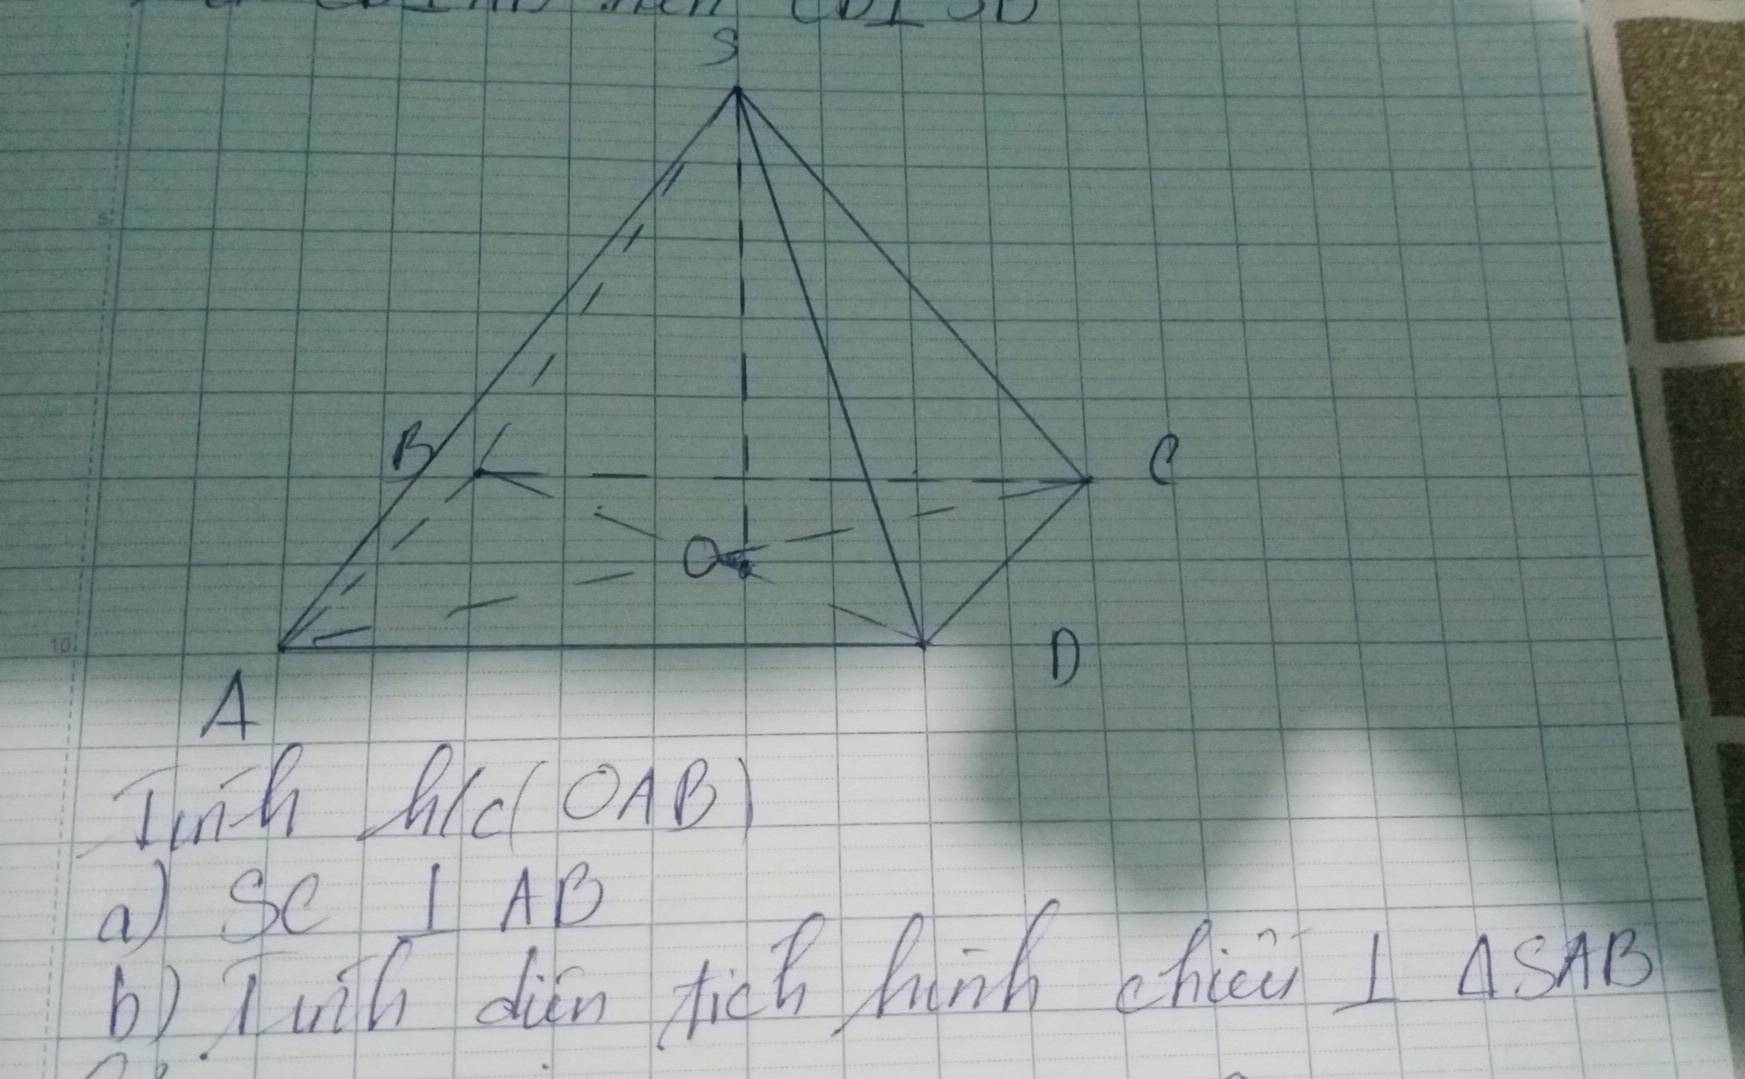 CD ⊥ SD
S
B
C
O
A
D
Tính h/c (OAB)
a) SC ⊥ AB
b) Tính diện tích hình chiếu ⊥ ΔSAB